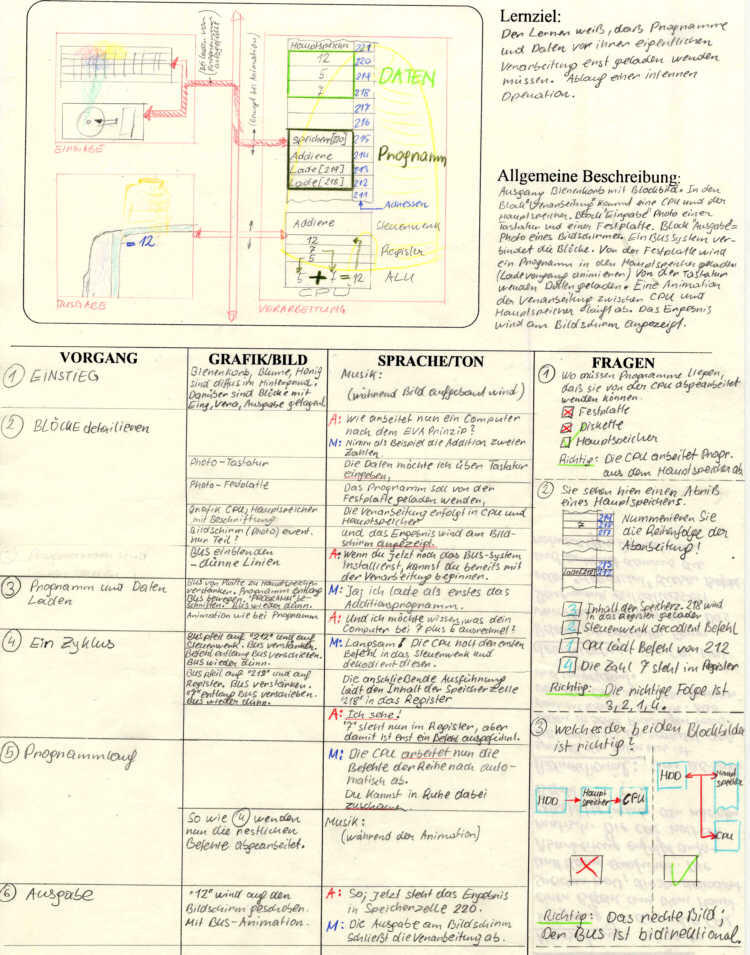 Hauptspeicher 221
12 220
5 219
7 218
DATEN
217
216
Speichern[220] 215
Addiere 214
Lade[219] 213
Lade[218] 212
211
Programm
Adressen
EINGABE
= 12
AUSGABE
Addiere Steuerwerk
12
7
5
Register
5 + 7 = 12 ALU
CPU
VERARBEITUNG
Lernziel:
Der Lerner weiß, dass Programme
und Daten vor ihrer eigentlichen
Verarbeitung erst geladen werden
müssen. Ablauf einer internen
Operation.
Allgemeine Beschreibung:
Ausgang Bienenkorb mit Blockbild. In den
Block Verarbeitung kommt eine CPU und der
Hauptspeicher. Block Eingabe Photo einer
Tastatur und einer Festplatte. Block Ausgabe=
Photo eines Bildschirmes. Ein Bus System ver-
bindet die Blöcke. Von der Festplatte wird
ein Programm in den Hauptspeicher geladen
(Ladevorgang animieren) Von der Tastatur
werden Daten geladen. Eine Animation
der Verarbeitung zwischen CPU und
Hauptspeicher läuft ab. Das Ergebnis
wird am Bildschirm angezeigt.
VORGANG
GRAFIK/BILD
SPRACHE/TON
FRAGEN
1 EINSTIEG
Bienenkorb, Blume, Honig
sind diffus im Hintergrund.
Darüber sind Blöcke mit
Eing, Vera, Ausgabe gelagert
Musik:
(während Bild aufgebaut wird)
2 BLÖCKE detailieren
A: Wie arbeitet nun ein Computer
nach dem EVA Prinzip?
M: Nimm als Beispiel die Addition zweier
Zahlen.
Photo-Tastatur
Die Daten möchte ich über Tastatur
eingeben,
Photo-Festplatte
Das Programm soll von der
Festplatte geladen werden,
Grafik CPU, Hauptspeicher
mit Beschriftung
Die Verarbeitung erfolgt in CPU und
Hauptspeicher
Bildschirm (Photo) event.
nur Teil?
und das Ergebnis wird am Bild-
schirm angezeigt.
BUS einblenden
- dünne Linien
A: Wenn du jetzt noch das Bus-System
installierst, kannst du bereits mit
der Verarbeitung beginnen.
3 Programm und Daten
Laden
Bus von Platte zu Hauptspeicher
verstärken. Programm entlang
Bus bewegen.
Bus wieder dünn.
Animation wie bei Programm
M: Ja, ich lade als erstes das
Additionsprogramm.
A: Und ich möchte wissen, was dein
Computer bei 7 plus 5 ausrechnet!
4 Ein Zyklus
Buspfeil auf "212" und auf
Steuerwerk. Bus verstärken.
Befehl entlang Bus verschieben.
Bus wieder dünn.
Buspfeil auf "218" und auf
Register. Bus verstärken.
"7" entlang Bus verschieben.
Bus wieder dünn.
M: Langsam! Die CPU holt den ersten
Befehl in das Steuerwerk und
dekodiert diesen.
Die anschließende Ausführung
lädt den Inhalt der Speicherzelle
"218" in das Register
A: Ich sehe!
"7" steht nun im Register, aber
damit ist erst ein Befehl ausgeführt.
5 Programmlauf
M: Die CPU arbeitet nun die
Befehle der Reihe nach auto-
matisch ab.
Du kannst in Ruhe dabei
zuschauen.
So wie 4 werden
nun die restlichen
Befehle abgearbeitet.
Musik:
(während der Animation)
6 Ausgabe
"12" wird auf den
Bildschirm geschoben.
Mit BUS-Animation.
A: So, jetzt steht das Ergebnis
in Speicherzelle 220.
M: Die Ausgabe am Bildschirm
schließt die Verarbeitung ab.
1 Wo müssen Programme liegen,
daß sie von der CPU abgearbeitet
werden können.
Festplatte
Diskette
Hauptspeicher
Richtig: Die CPU arbeitet Progr.
aus dem Hauptspeicher ab
2 Sie sehen hier einen Abriß
eines Hauptspeichers.
219
218
217
Lade[218]
213
212
Nummerieren Sie
die Reihenfolge der
Abarbeitung!
3 Inhalt der Speicherz. 218 wird
in das Register geladen
2 Steuerwerk decodiert Befehl
1 CPU lädt Befehl von 212
4 Die Zahl 7 steht im Register
Richtig: Die richtige Folge ist
3, 2, 1, 4.
3 Welches der beiden Blockbilder
ist richtig?
HDD Hauptspeicher CPU
HDD Hauptspeicher
CPU
Richtig: Das rechte Bild;
Der BUS ist bidirektional.